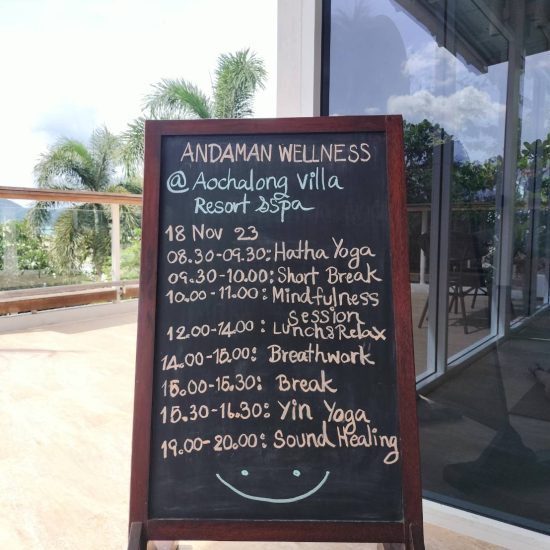 ANDAMAN WELLNESS
@ Aochalong Villa
Resort & Spa
18 Nov 23
08.30-09.30: Hatha Yoga
09.30-10.00: Short Break
10.00-11.00: Mindfulness
Session
12.00-14.00: Lunch & Relax
14.00-15.00: Breathwork
15.00-15.30: Break
15.30-16.30: Yin Yoga
19.00-20.00: Sound Healing